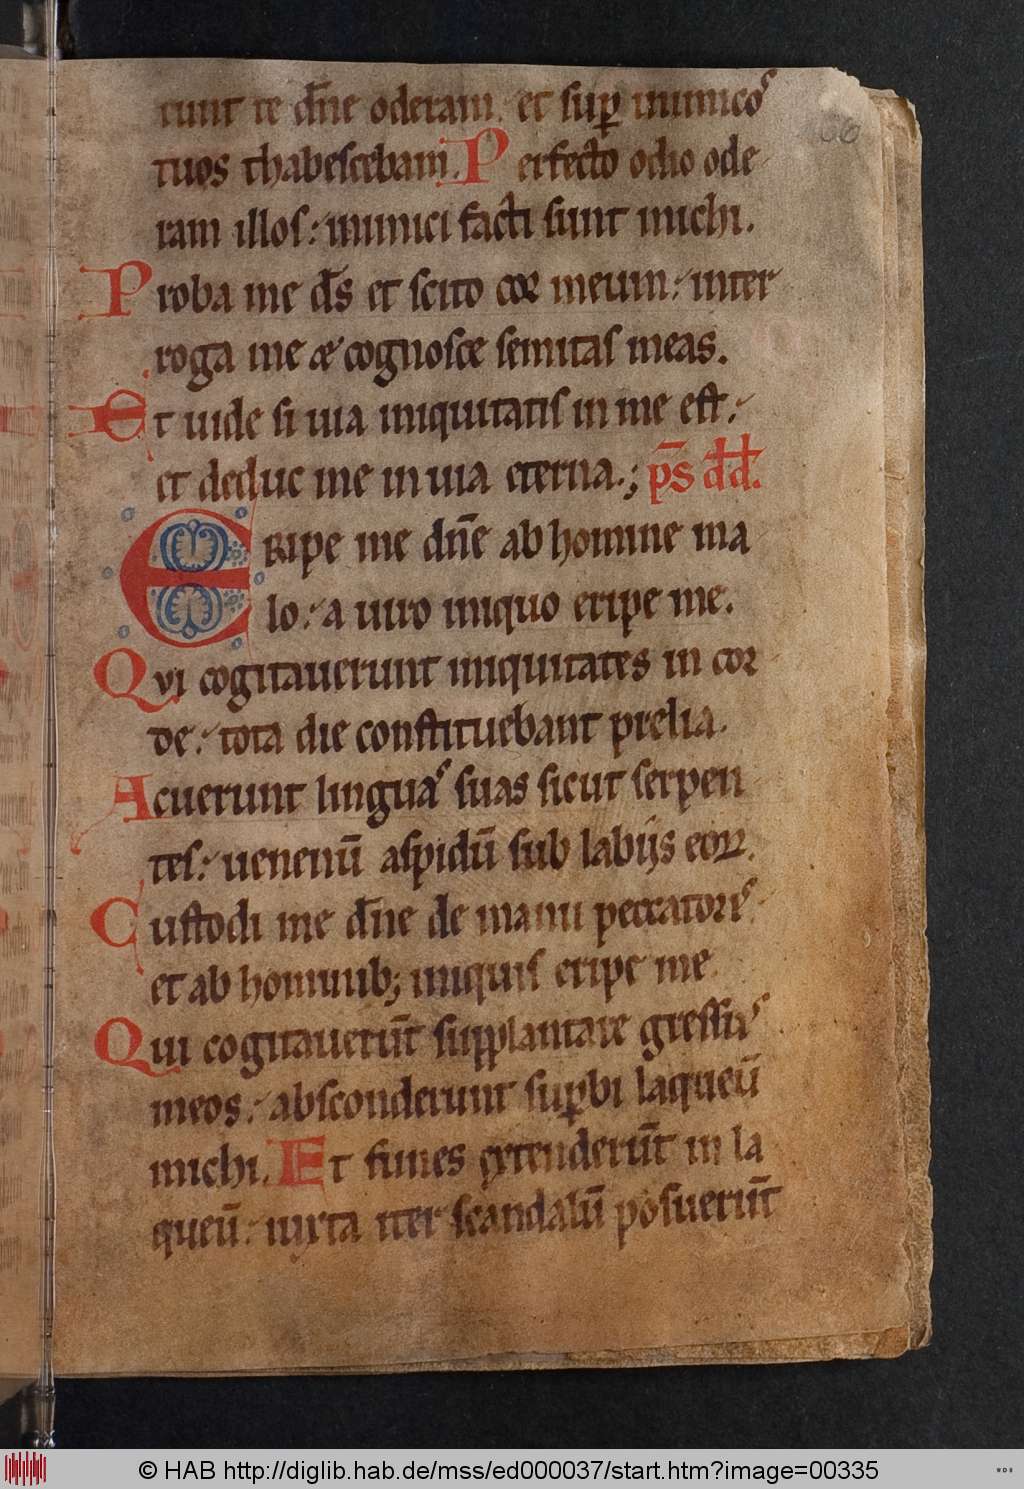 166
runt te dn̄e oderam. et sup̱ inimicos
tuos thabescebam. Perfecto odio ode
ram illos: inimici facti sunt michi.
Proba me ds̄ et scito cor meum: inter
roga me & cognosce semitas meas.
Et uide si uia iniquitatis in me est:
et deduc me in uia eterna.; ps̄ dd.
ERipe me dn̄e ab homine ma
lo: a uiro iniquo eripe me.
Qvi cogitauerunt iniquitates in cor
de: tota die constituebant prelia.
Acuerunt linguas suas sicut serpen
tes: uenenū aspidū sub labijs eoꝝ.
Custodi me dn̄e de manu peccatoris
et ab hominib; iniquis eripe me
Qui cogitauerūt supplantare gressus
meos: absconderunt sup̱bi laqueū
michi. Et funes extenderūt in la
queū: iuxta iter scandalū posuerūt
© HAB http://diglib.hab.de/mss/ed000037/start.htm?image=00335